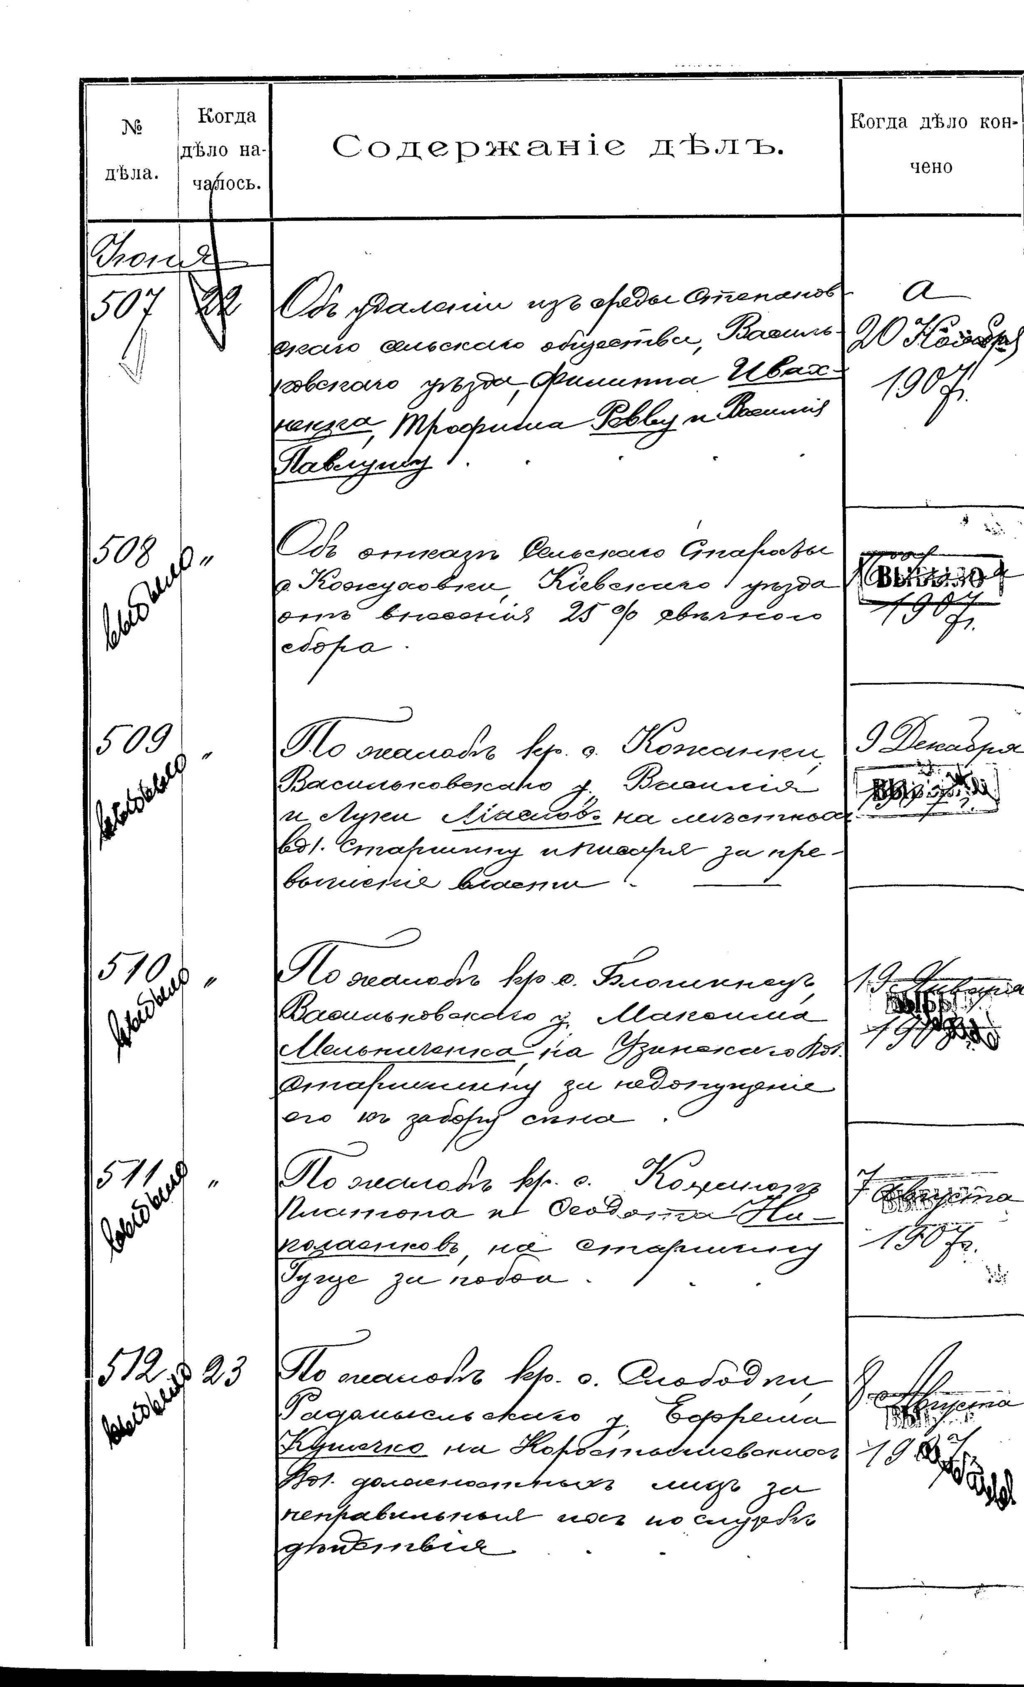 № дѣла.
Когда дѣло на-чалось.
Содержаніе дѣлъ.
Когда дѣло кон-чено
Іюня
507 22
Объ удаленіи изъ среды Степанов-
скаго сельскаго общества, Василь-
ковскаго уѣзда, Филиппа Ивах-
ненка, Трофима Ревву и Василія
Павлушу
20 Ноября
1907 г.
508 "
выбыло
Объ отказѣ Сельскаго Старосты
с. Кожуховки, Кіевскаго уѣзда
отъ внесенія 25 % свѣчного
сбора.
ВЫБЫЛО
1907 г.
509 "
выбыло
По жалобѣ кр. с. Кожанки,
Васильковскаго у. Василія
и Луки на мѣстнаго
вол. Старшину и писаря за пре-
вышеніе власти.
9 Декабря
1907 г.
510 "
выбыло
По жалобѣ кр. с. Блощинецъ,
Васильковскаго у. Максима
Мельниченка, на Узинскаго Вол.
старшину за недопущеніе
его къ забору сѣна.
19 Января
511 "
выбыло
По жалобѣ кр. с.
Платона и Ѳеодота Ни-
колаенковъ, на старшину
за побои.
7 Августа
1907 г.
512 23
выбыло
По жалобѣ кр. с. Слободки,
Радомысльскаго у. Ефрема
Кушечко на Коростышевскихъ
Вол. должностныхъ лицъ за
неправильныя ихъ по службѣ
дѣйствія
8 Августа
1907